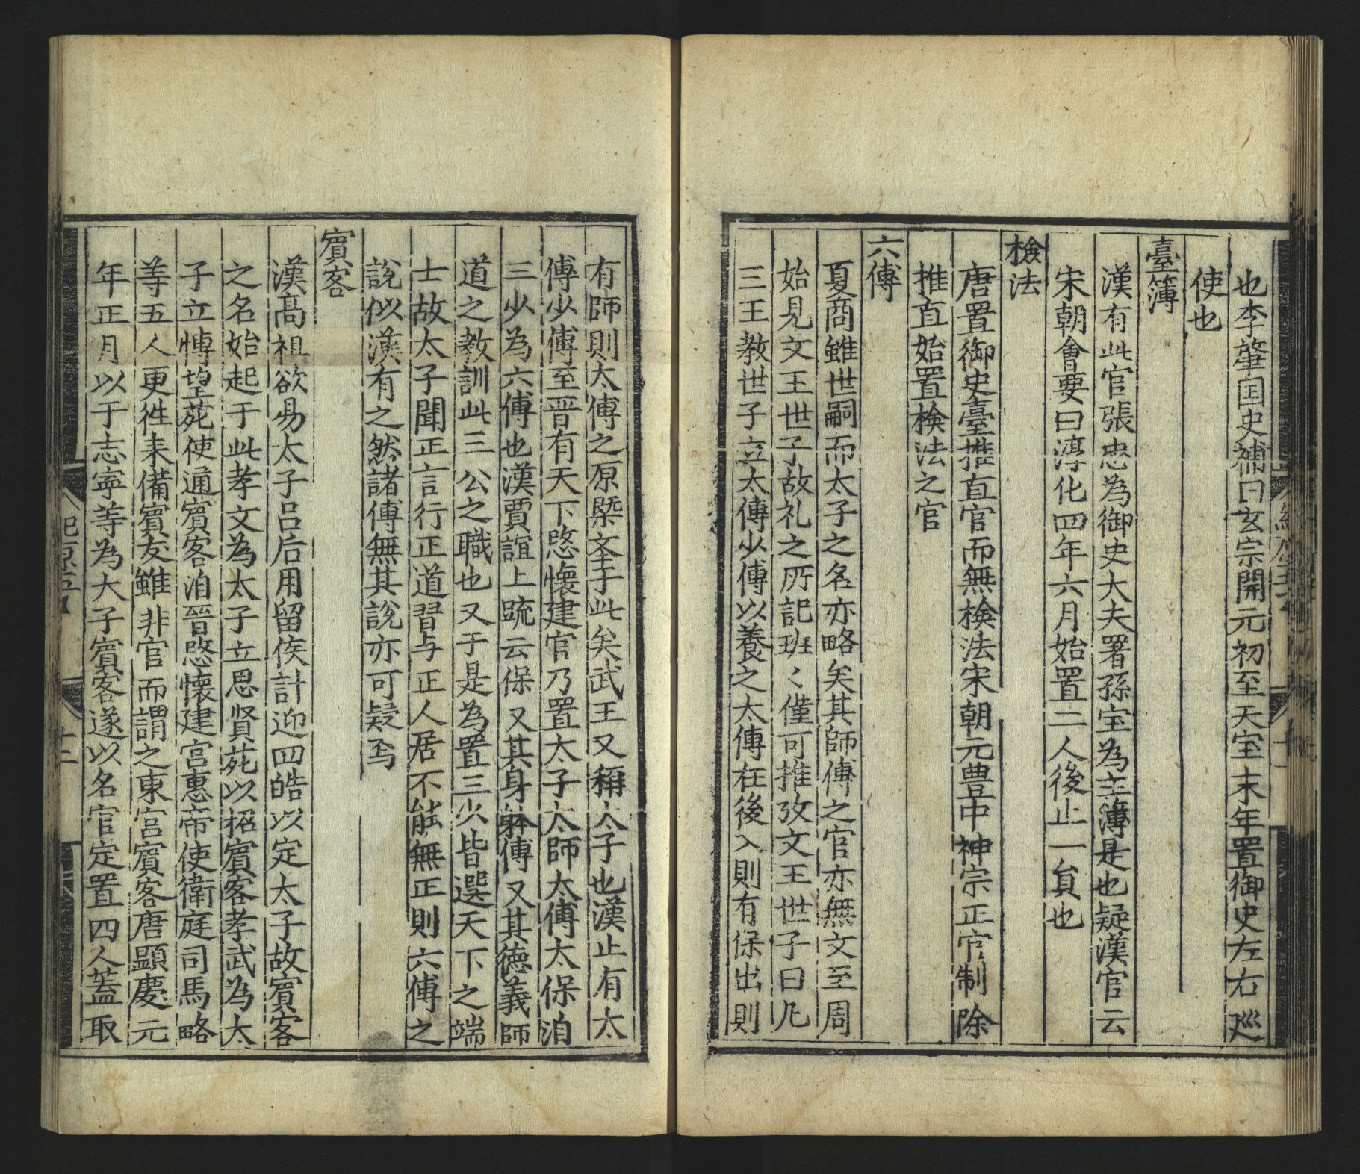 也李肇国史補曰玄宗開元初至天宝末年置御史左右巡
使也
臺簿
漢有此官張忠為御史大夫署孫宝為主簿是也疑漢官云
宋朝會要曰淳化四年六月始置二人後止一負也
檢法
唐置御史臺推直官而無檢法宋朝元豊中神宗正官制除
推直始置檢法之官
六傅
夏商雖世嗣而太子之名亦略矣其師傅之官亦無文至周
始見文王世子故礼之所記班〻僅可推攷文王世子曰凡
三王教世子立太傅少傅以養之太傅在後入則有保出則
有師則太傅之原槩夲于此矣武王又稱太子也漢止有太
傅少傅至晋有天下愍懷建官乃置太子太師太傅太保洎
三少為六傅也漢賈誼上疏云保又其身躰傅又其德義師
道之教訓此三公之職也又于是為置三少皆選天下之端
士故太子聞正言行正道習与正人居不能無正則六傅之
說似漢有之然諸傳無其說亦可疑焉
賓客
漢高祖欲易太子吕后用留侯計迎四皓以定太子故賓客
之名始起于此孝文為太子立思賢苑以招賓客孝武為太
子立博望苑使通賓客洎晉愍懷建宫惠帝使衛庭司馬略
等五人更徃来備賓友雖非官而謂之東宫賓客唐顯慶元
年正月以于志寧等為太子賓客遂以名官定置四人蓋取
紀原五
十二